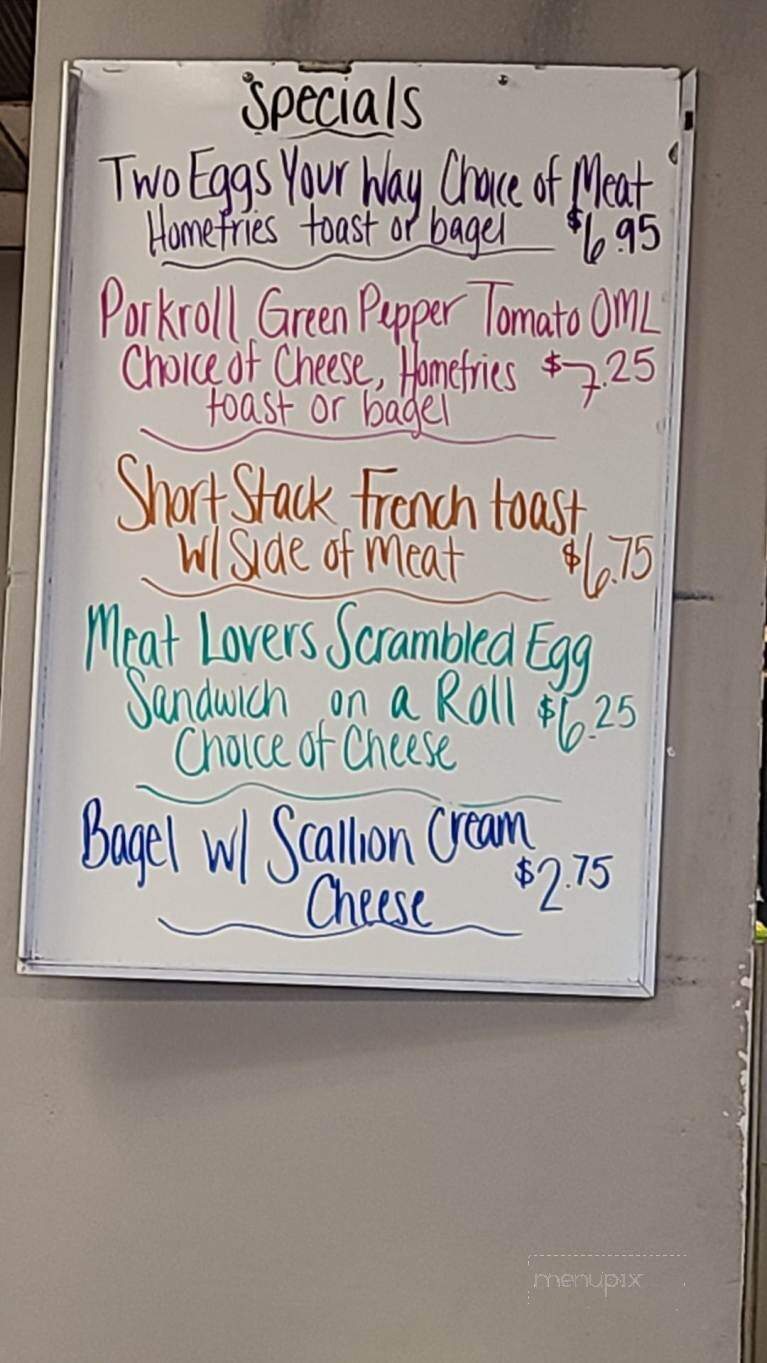 Specials
Two Eggs Your Way Choice of Meat
Homefries toast or bagel $6.95
Porkroll Green Pepper Tomato OML
Choice of Cheese, Homefries $7.25
toast or bagel
Short Stack French toast
W/ Side of meat $6.75
Meat Lovers Scrambled Egg
Sandwich on a Roll $6.25
Choice of Cheese
Bagel w/ Scallion Cream
Cheese $2.75
menupix